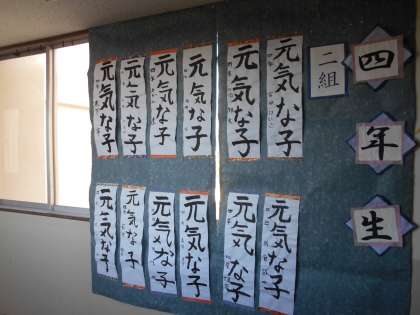 四年生
二組
元気な子
元気な子
元気な子
元気な子
元気な子
元気な子
元気な子
元気な子
元気な子
元気な子
元気な子
元気な子